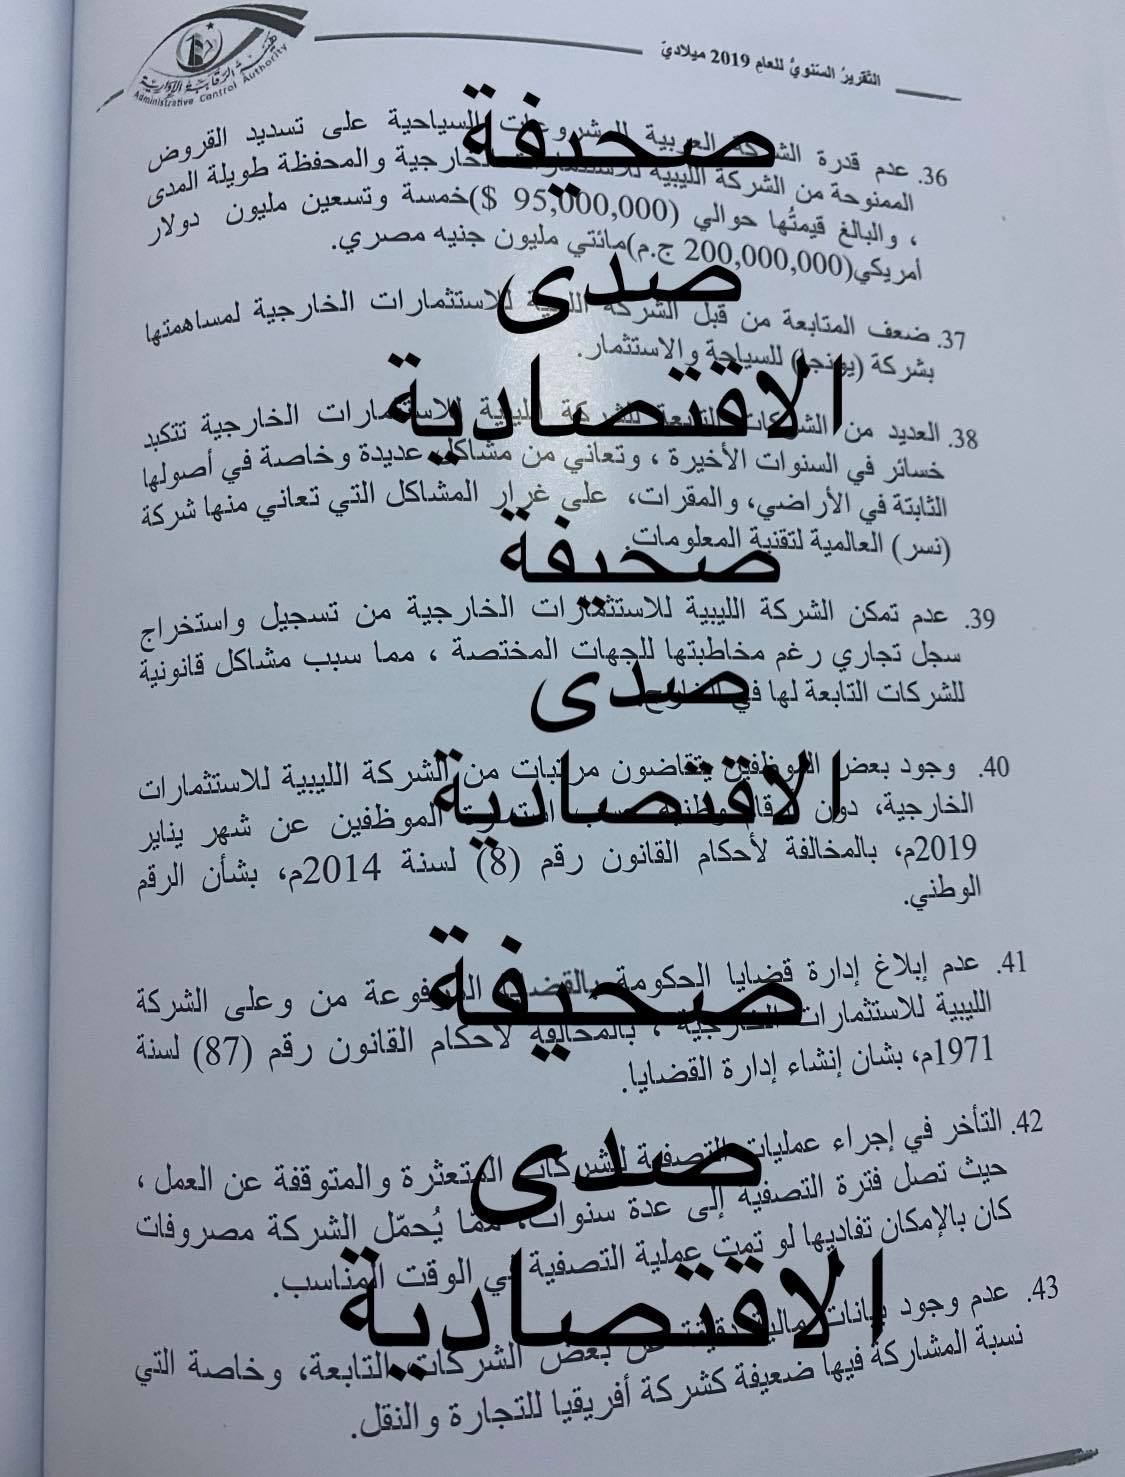 هيئة الرقابة الإدارية
Administrative Control Authority
التقرير السنوي للعام 2019 ميلادي
36. عدم قدرة الشركة العربية للمشروعات السياحية على تسديد القروض
الممنوحة من الشركة الليبية للاستثمارات الخارجية والمحفظة طويلة المدى
، والبالغ قيمتُها حوالي (95,000,000 $)خمسة وتسعين مليون دولار
أمريكي(200,000,000 ج.م)مائتي مليون جنيه مصري.
37. ضعف المتابعة من قبل الشركة الليبية للاستثمارات الخارجية لمساهمتها
بشركة للسياحة والاستثمار.
38. العديد من الشركات التابعة للشركة الليبية للاستثمارات الخارجية تتكبد
خسائر في السنوات الأخيرة ، وتعاني من مشاكل عديدة وخاصة في أصولها
الثابتة في الأراضي، والمقرات، على غرار المشاكل التي تعاني منها شركة
(نسر) العالمية لتقنية المعلومات.
39. عدم تمكن الشركة الليبية للاستثمارات الخارجية من تسجيل واستخراج
سجل تجاري رغم مخاطبتها للجهات المختصة ، مما سبب مشاكل قانونية
للشركات التابعة لها في الخارج.
40. وجود بعض الموظفين يتقاضون مرتبات من الشركة الليبية للاستثمارات
الخارجية، دون أرقام وطنية حسب الموظفين عن شهر يناير
2019م، بالمخالفة لأحكام القانون رقم (8) لسنة 2014م، بشأن الرقم
الوطني.
41. عدم إبلاغ إدارة قضايا الحكومة بالقضايا المرفوعة من وعلى الشركة
الليبية للاستثمارات الخارجية ، بالمخالفة لأحكام القانون رقم (87) لسنة
1971م، بشان إنشاء إدارة القضايا.
42. التأخر في إجراء عمليات التصفية للشركات المتعثرة والمتوقفة عن العمل ،
حيث تصل فترة التصفية إلى عدة سنوات، ممّا يُحمّل الشركة مصروفات
كان بالإمكان تفاديها لو تمت عملية التصفية في الوقت المناسب.
43. عدم وجود بيانات مالية دقيقة عن بعض الشركات التابعة، وخاصة التي
نسبة المشاركة فيها ضعيفة كشركة أفريقيا للتجارة والنقل.
صحيفة
صدى
الاقتصادية
صحيفة
صدى
الاقتصادية
صحيفة
صدى
الاقتصادية